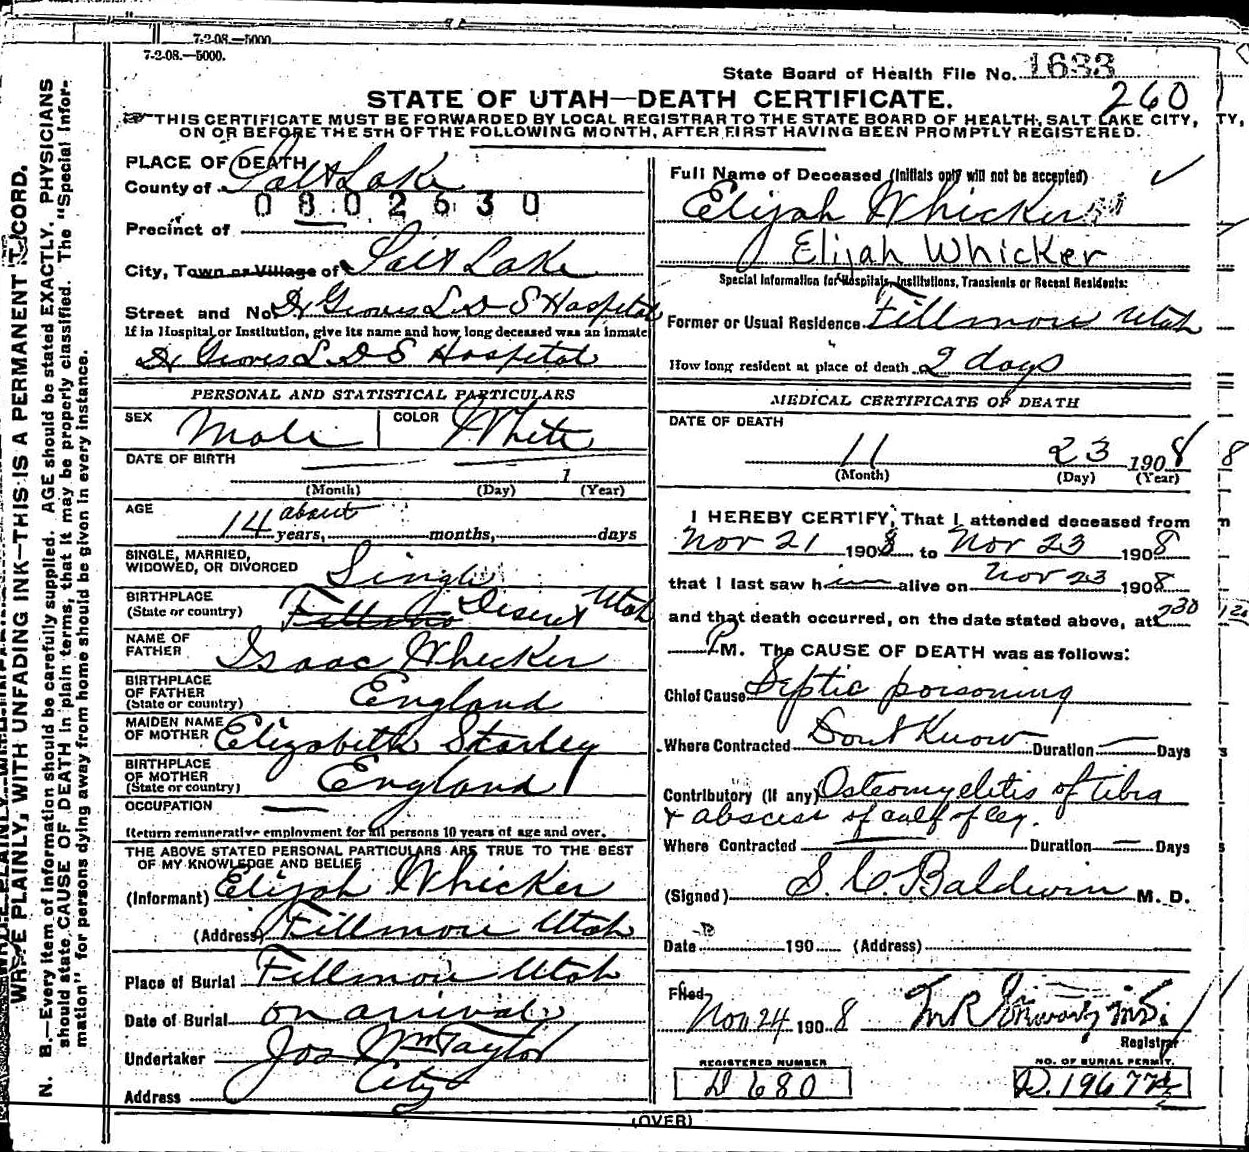 7-2-08.—5000
7-2-08.—5000.
State Board of Health File No. 1633
STATE OF UTAH—DEATH CERTIFICATE.
260
THIS CERTIFICATE MUST BE FORWARDED BY LOCAL REGISTRAR TO THE STATE BOARD OF HEALTH, SALT LAKE CITY,
ON OR BEFORE THE 5TH OF THE FOLLOWING MONTH, AFTER FIRST HAVING BEEN PROMPTLY REGISTERED.
WRITE PLAINLY, WITH UNFADING INK—THIS IS A PERMANENT RECORD.
N. B.—Every item of information should be carefully supplied. AGE should be stated EXACTLY. PHYSICIANS
should state CAUSE OF DEATH in plain terms, that it may be properly classified. The "Special Infor-
mation" for persons dying away from home should be given in every instance.
PLACE OF DEATH
County of Salt Lake
0802630
Precinct of
City, Town or Village of Salt Lake
Street and No. Dr Groves L D S Hospital
If in Hospital or Institution, give its name and how long deceased was an inmate
Dr Groves L D S Hospital
PERSONAL AND STATISTICAL PARTICULARS
SEX Male COLOR White
DATE OF BIRTH
1
(Month) (Day) (Year)
AGE about
14 years, months, days
SINGLE, MARRIED,
WIDOWED, OR DIVORCED Single
BIRTHPLACE
(State or country) Fillmore Deseret Utah
NAME OF
FATHER Isaac Whicker
BIRTHPLACE
OF FATHER
(State or country) England
MAIDEN NAME
OF MOTHER Elizabeth Starley
BIRTHPLACE
OF MOTHER
(State or country) England
OCCUPATION
Return remunerative employment for all persons 10 years of age and over.
THE ABOVE STATED PERSONAL PARTICULARS ARE TRUE TO THE BEST
OF MY KNOWLEDGE AND BELIEF
(Informant) Elijah Whicker
(Address) Fillmore Utah
Place of Burial Fillmore Utah
Date of Burial on arrival
Undertaker Jos Wm Taylor
Address City
Full Name of Deceased (Initials only will not be accepted)
Elijah Whicker
Elijah Whicker
Special Information for Hospitals, Institutions, Transients or Recent Residents:
Former or Usual Residence Fillmore Utah
How long resident at place of death 2 days
MEDICAL CERTIFICATE OF DEATH
DATE OF DEATH
11 23 1908
(Month) (Day) (Year)
I HEREBY CERTIFY, That I attended deceased from
Nov 21 1908 to Nov 23 1908
that I last saw him alive on Nov 23 1908
and that death occurred, on the date stated above, at 230
P M. The CAUSE OF DEATH was as follows:
Chief Cause Septic poisoning
Where Contracted Dont Know Duration — Days
Contributory (if any) Osteomyelitis of tibia
& abscess of calf of leg.
Where Contracted Duration — Days
(Signed) S. C. Baldwin M. D.
Date 190 (Address)
Filed
Nov 24 1908
Registrar
REGISTERED NUMBER
D 680
NO. OF BURIAL PERMIT.
D. 19677½
(OVER)